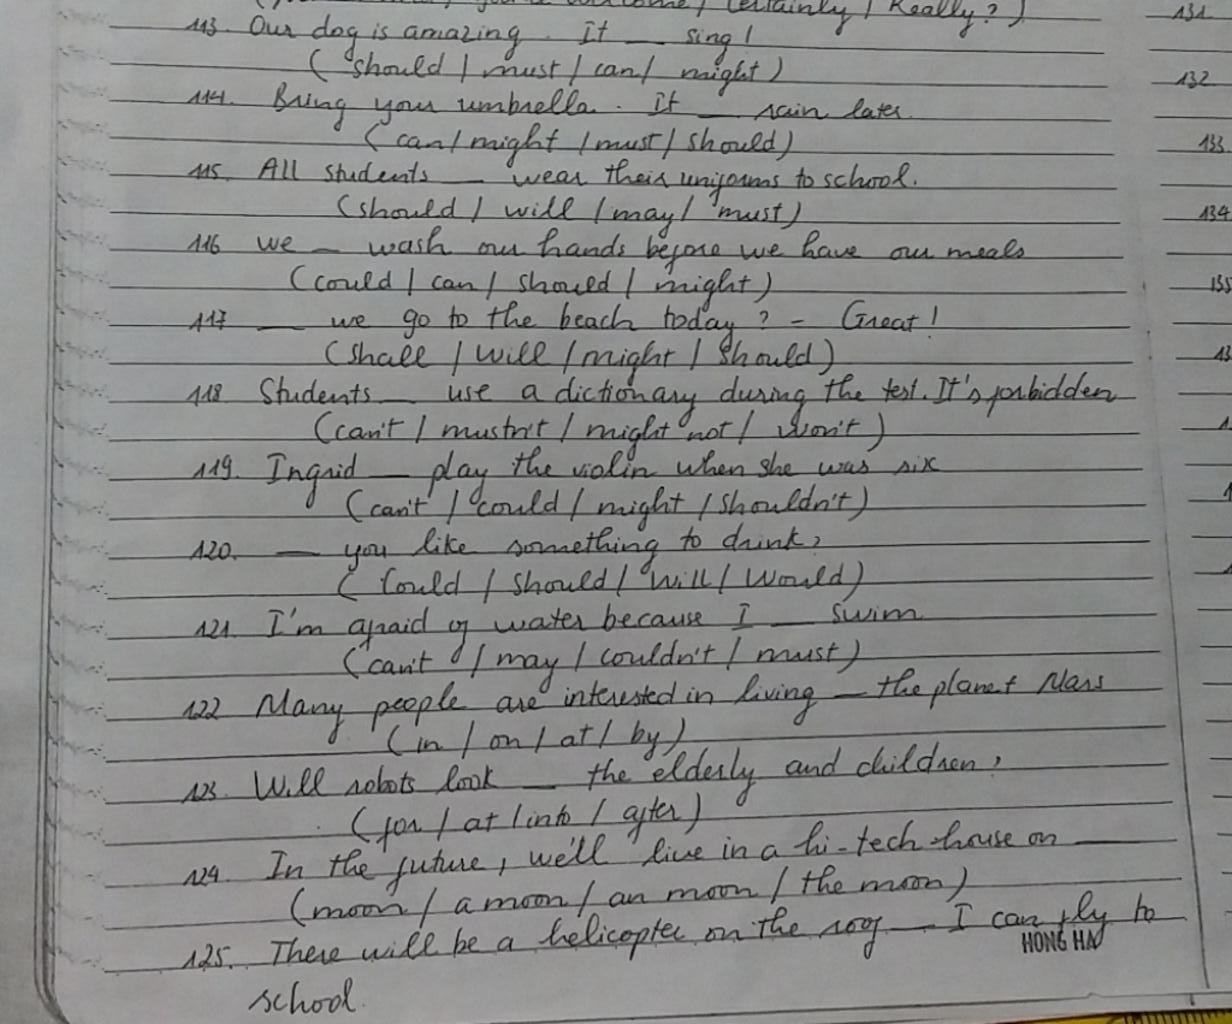 certainly / Really?)
113. Our dog is amazing. It __ sing!
(should / must / can / might)
114. Bring your umbrella. It __ rain later.
(can / might / must / should)
115. All students __ wear their uniforms to school.
(should / will / may / must)
116 we __ wash our hands before we have our meals
(could / can / should / might)
117 __ we go to the beach today? - Great!
(shall / will / might / should)
118 Students __ use a dictionary during the test. It's forbidden
(can't / mustn't / might not / won't)
119. Ingrid __ play the violin when she was six
(can't / could / might / shouldn't)
120. __ you like something to drink?
(Could / should / will / would)
121. I'm afraid of water because I __ swim
(can't / may / couldn't / must)
122 Many people are interested in living __ the planet Mars
(in / on / at / by)
123. Will robots look __ the elderly and children?
(for / at / into / after)
124. In the future, we'll live in a hi-tech house on __
(moon / a moon / an moon / the moon)
125. There will be a helicopter on the roof __ I can fly to
school.
HONG HA
131
132
133
134
135